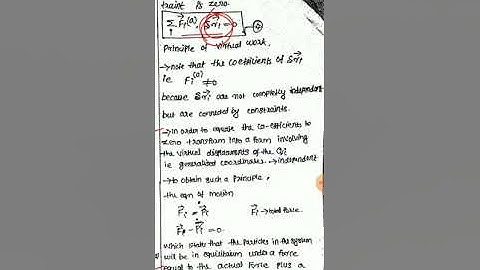 traint is zero
Σ F⃗i^(a). δr⃗i = 0 → ②
i
Principle of virtual work.
→ note that the coefficients of δr⃗i
ie Fi^(a) ≠ 0
because δr⃗i are not completly independent
but are connected by constraints.
→ In order to equate the co-efficients to
zero transform into a form involving
the virtual displacements of the qi
ie generalised coordinates. → independent
→ to obtain such a principle,
the eqn of motion
F⃗i = P⃗̇i F⃗i → total force.
F⃗i - P⃗̇i = 0
which state that the particles in the system
will be in equilibrium under a force
equal to the actual force plus a